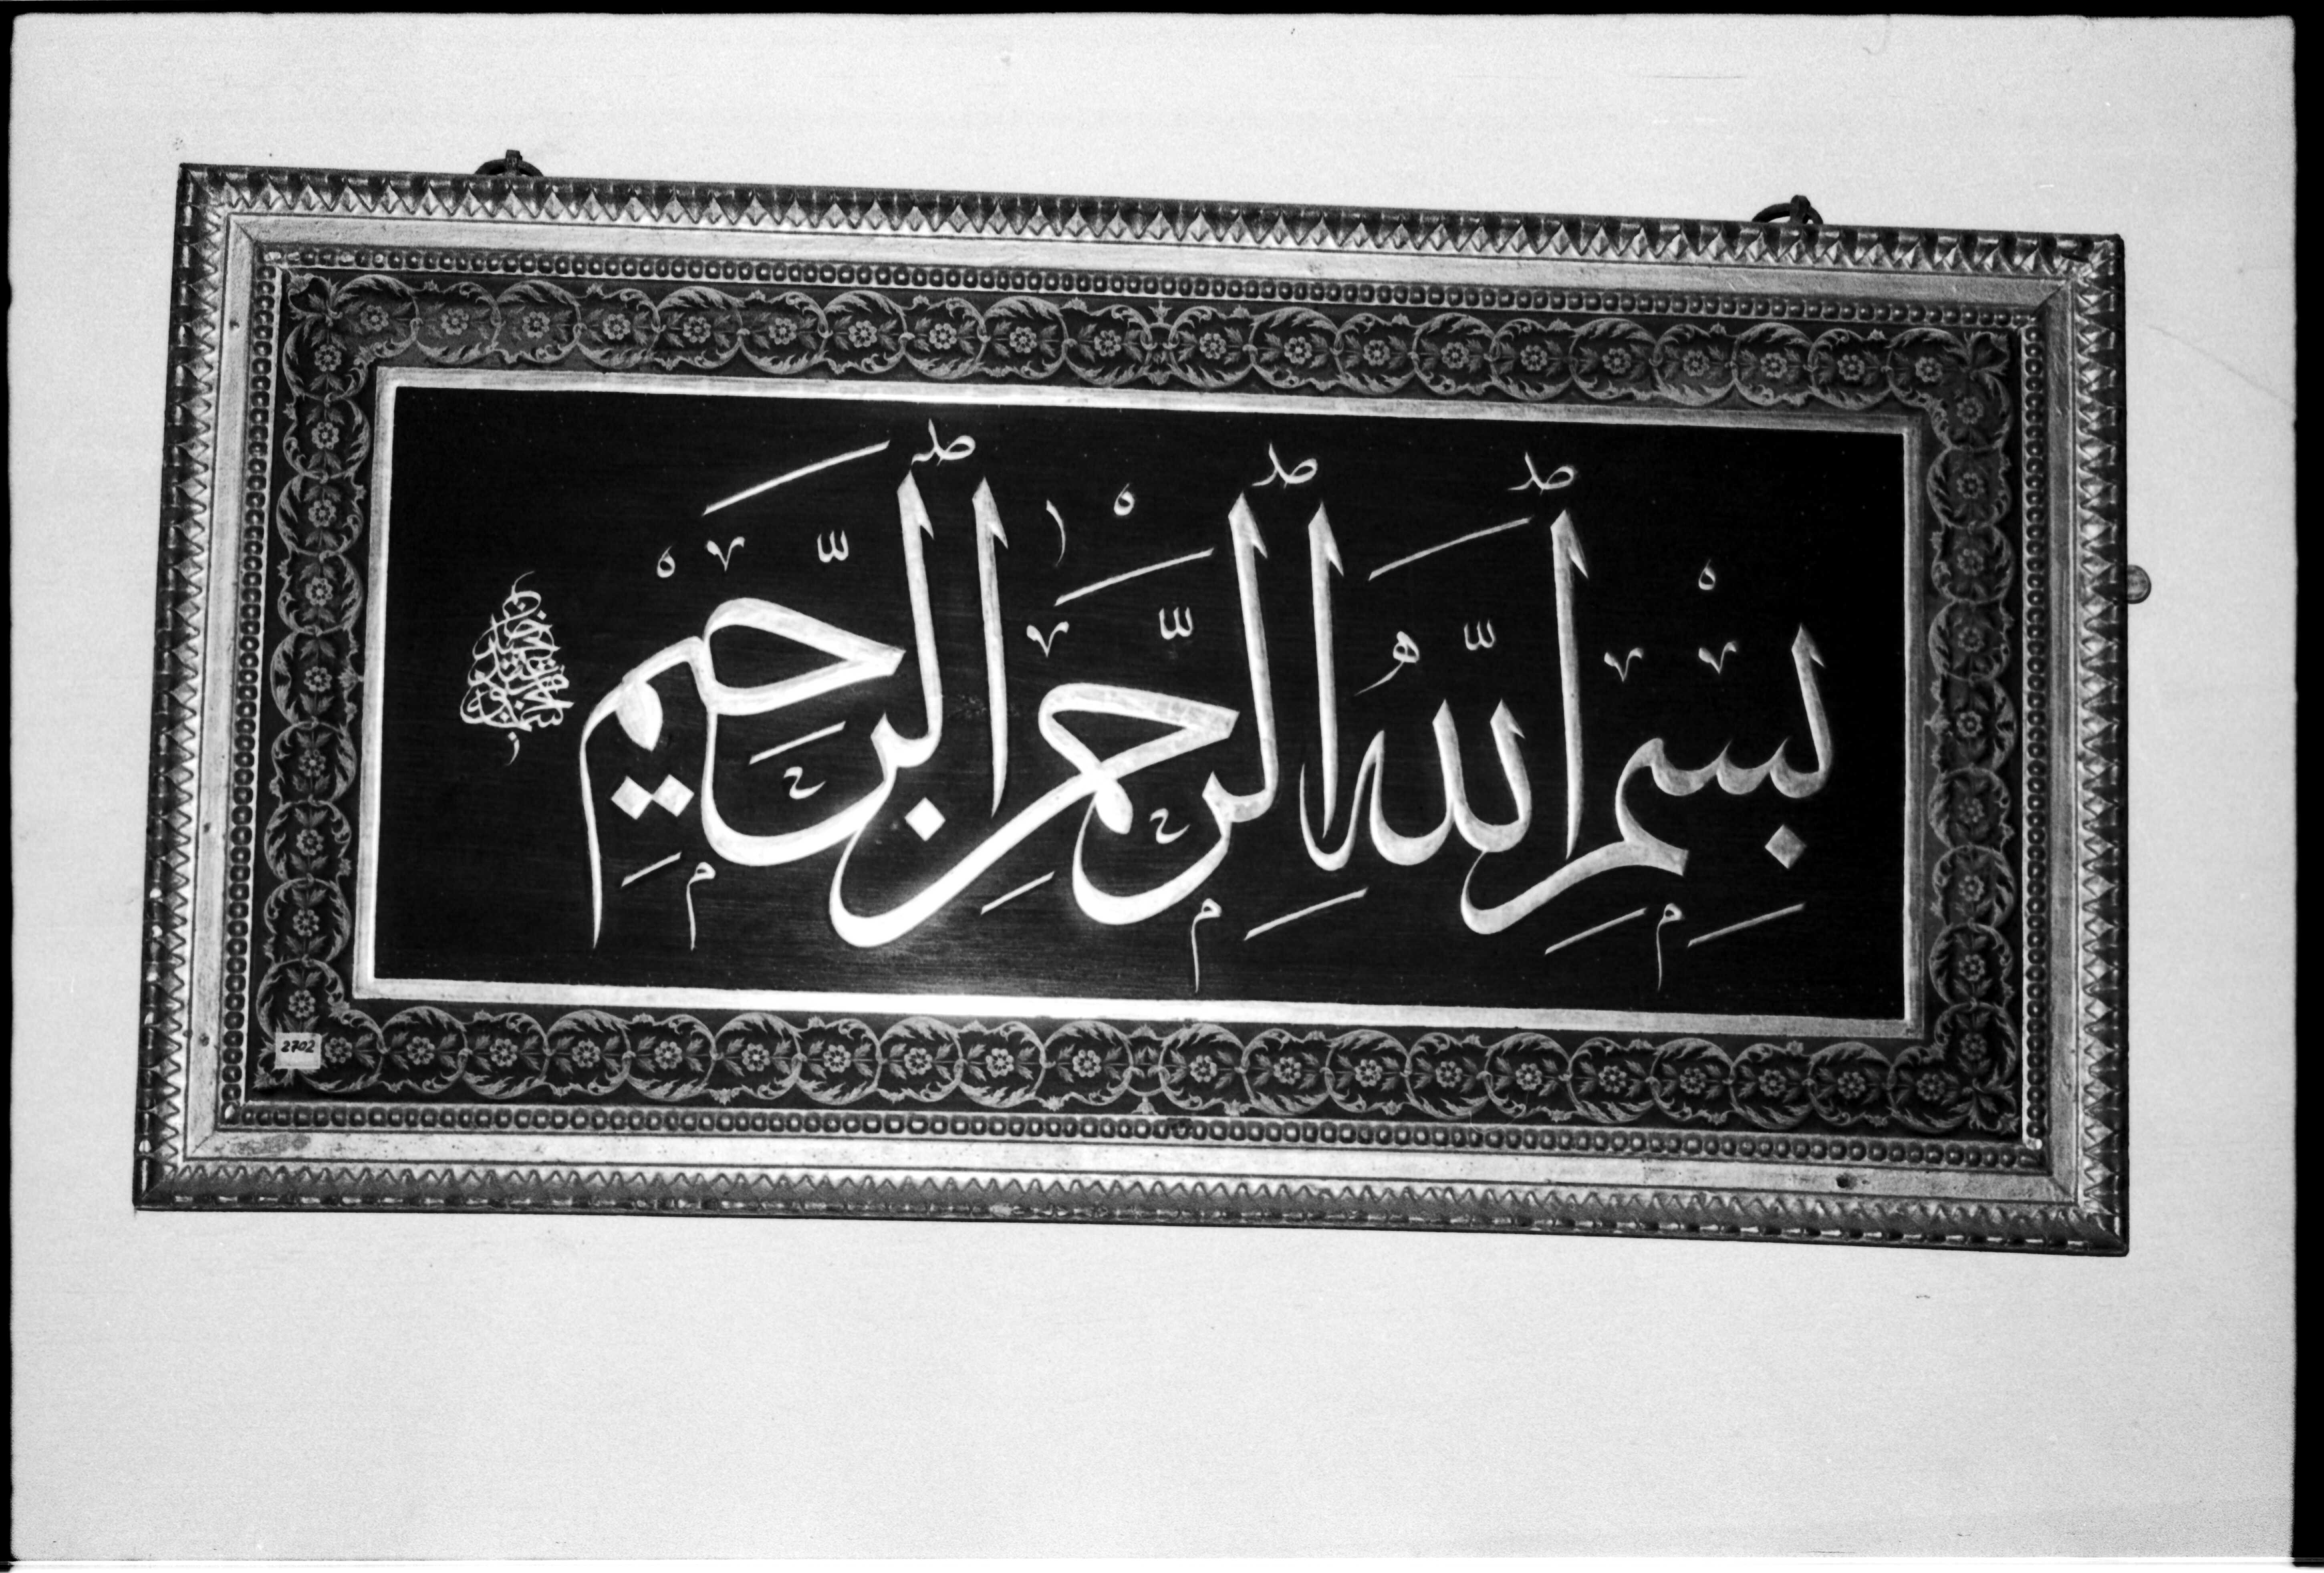 بِسْمِ ٱللَّهِ ٱلرَّحْمٰنِ ٱلرَّحِيمِ
2702